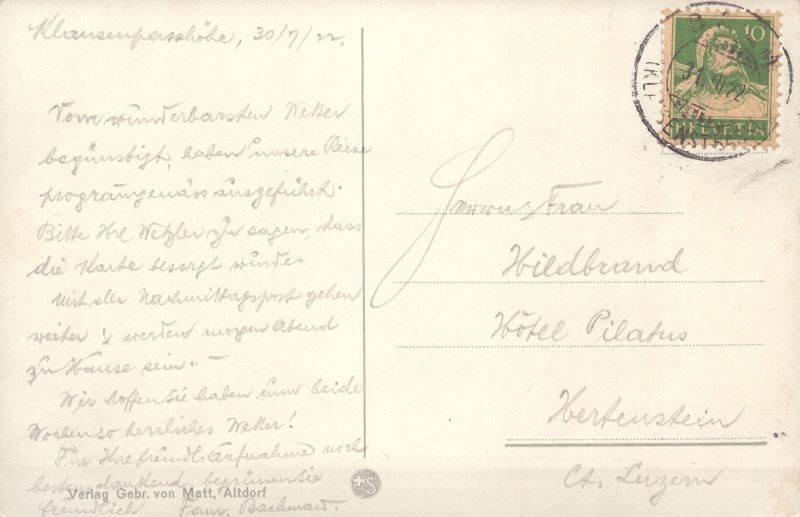 Klausenpasshöhe, 30/7/22.
Vom wunderbarsten Wetter
begünstigt, haben unsere Reise
programgemäss ausgeführt.
Bitte Hrl Wetzler zu sagen, dass
die Karte besorgt wurde.
Mit der Nachmittagspost gehen
weiter & werden morgen Abend
zu Hause sein. –
Wir hoffen Sie haben nun beide
Wochen so herrliches Wetter!
Für Ihre freundl. Aufnahme noch
bestens dankend, begrüssen Sie
freundlich Fam. Bachmann.
Verlag Gebr. von Matt, Altdorf
+S
10
HELVETIA
31.VII.22
Herrn u. Frau
Hildbrand
Hôtel Pilatus
Hertenstein
Ct. Luzern